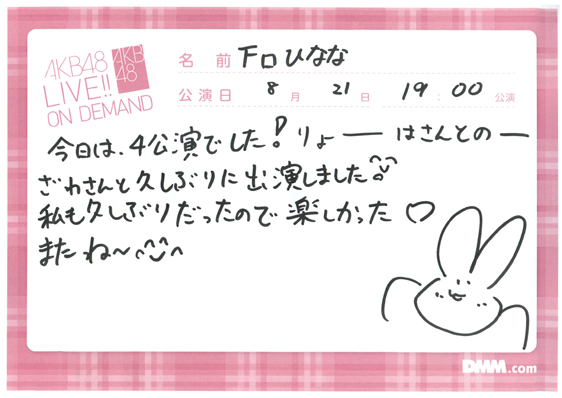 AKB48
LIVE!!
ON DEMAND
AKB
48
名 前 下口ひなな
公演日 8月 21日 19:00 公演
今日は、4公演でした!りょーはさんとのー
ざわさんと久しぶりに出演しました
私も久しぶりだったので楽しかった♡
またね〜
DMM.com